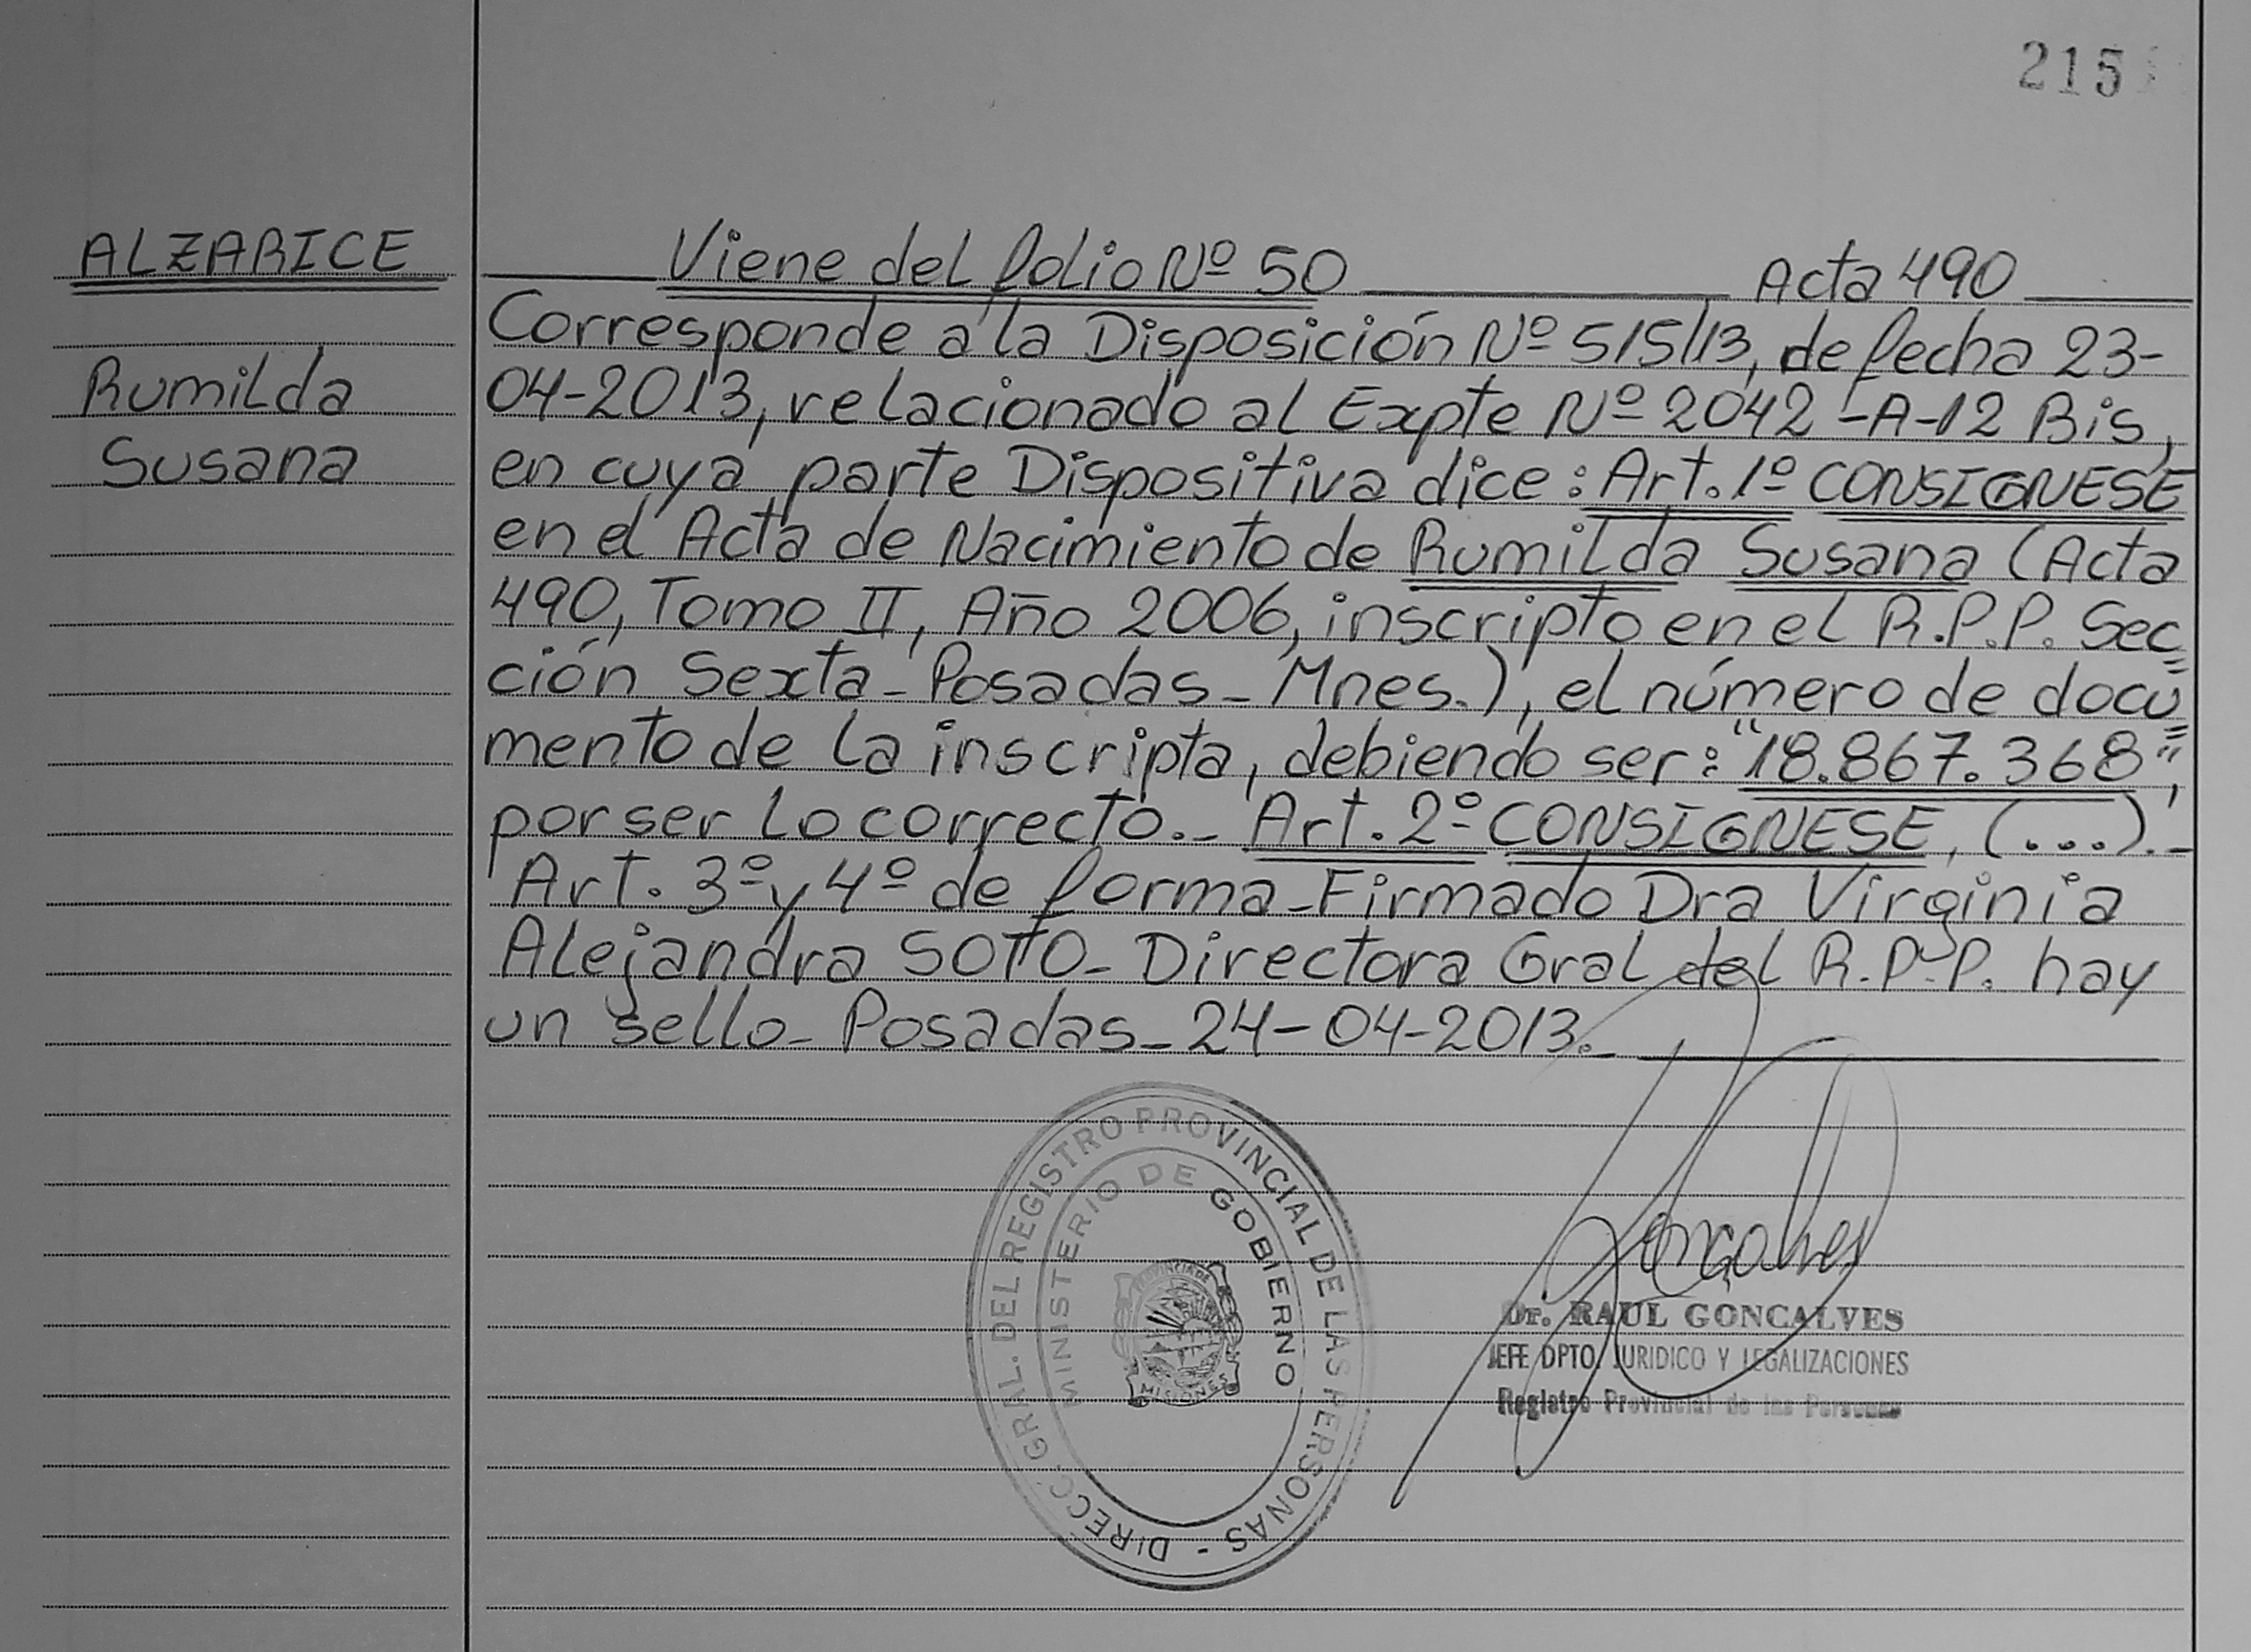 215
ALZARICE
Rumilda
Susana
Viene del folio Nº 50 Acta 490
Corresponde a la Disposición Nº 515/13, de fecha 23-
04-2013, relacionado al Expte Nº 2042-A-12 Bis,
en cuya parte Dispositiva dice: Art. 1º CONSIGNESE
en el Acta de Nacimiento de Rumilda Susana (Acta
490, Tomo II, Año 2006, inscripto en el R.P.P. Sec
ción Sexta-Posadas-Mnes.), el número de docu
mento de la inscripta, debiendo ser: "18.867.368",
por ser lo correcto.- Art. 2º CONSIGNESE, (...).-
Art. 3º y 4º de forma-Firmado Dra Virginia
Alejandra SOTTO-Directora Gral del R.P.P. hay
un sello-Posadas-24-04-2013.-
DIRECC. GRAL. DEL REGISTRO PROVINCIAL DE LAS PERSONAS -
MINISTERIO DE GOBIERNO
PROVINCIA DE
MISIONES
Goncalves
Dr. RAUL GONCALVES
JEFE DPTO. JURIDICO Y LEGALIZACIONES
Registro Provincial de las Personas